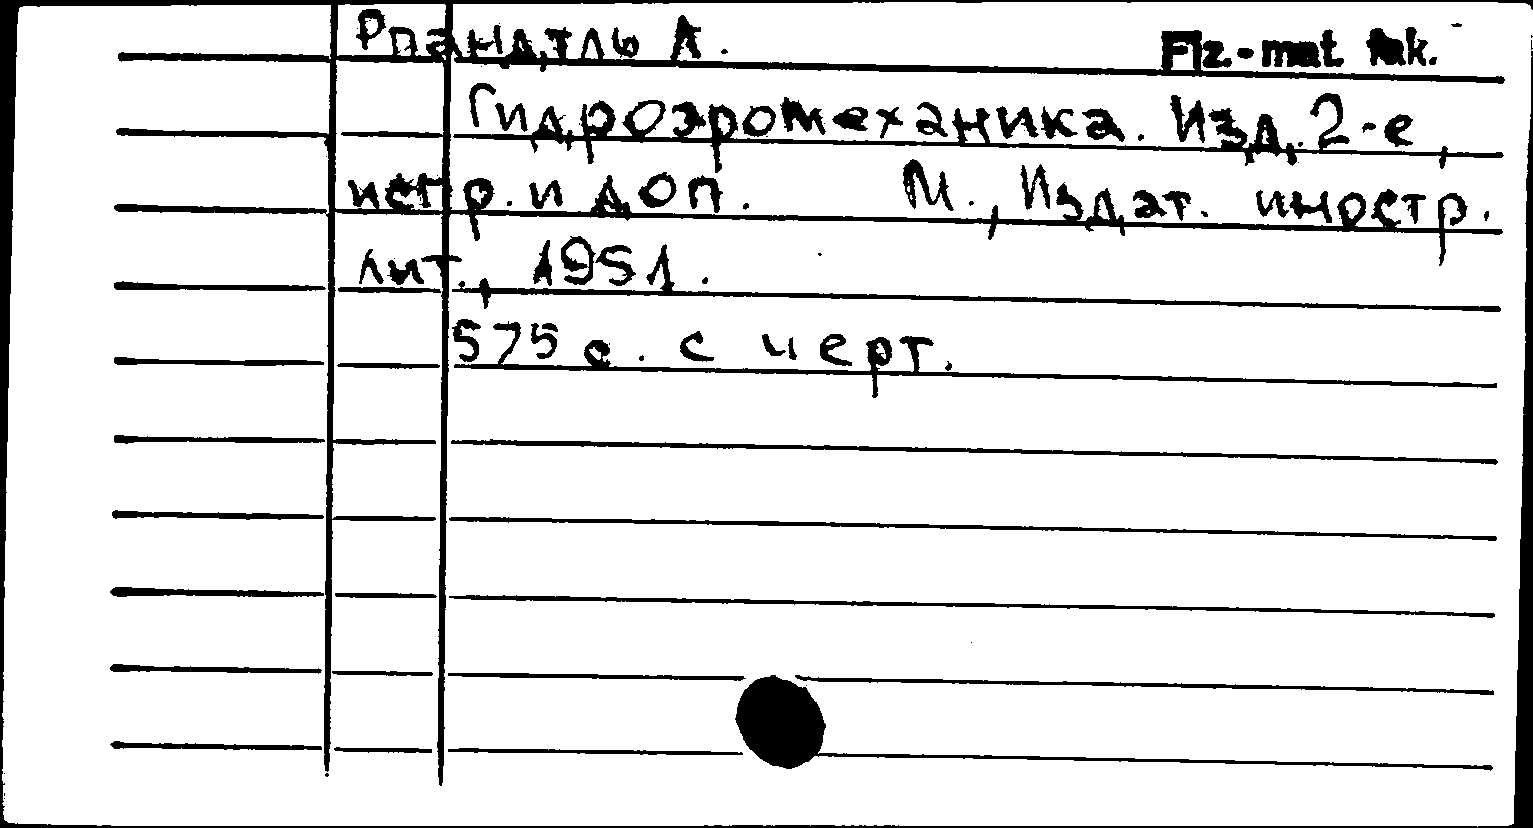 Рпандтль А.
Fiz.-mat. fak.
Гидроэромеханика. Изд. 2-е,
испр. и доп. М., Издат. иностр.
лит., 1951.
575 с. с черт.